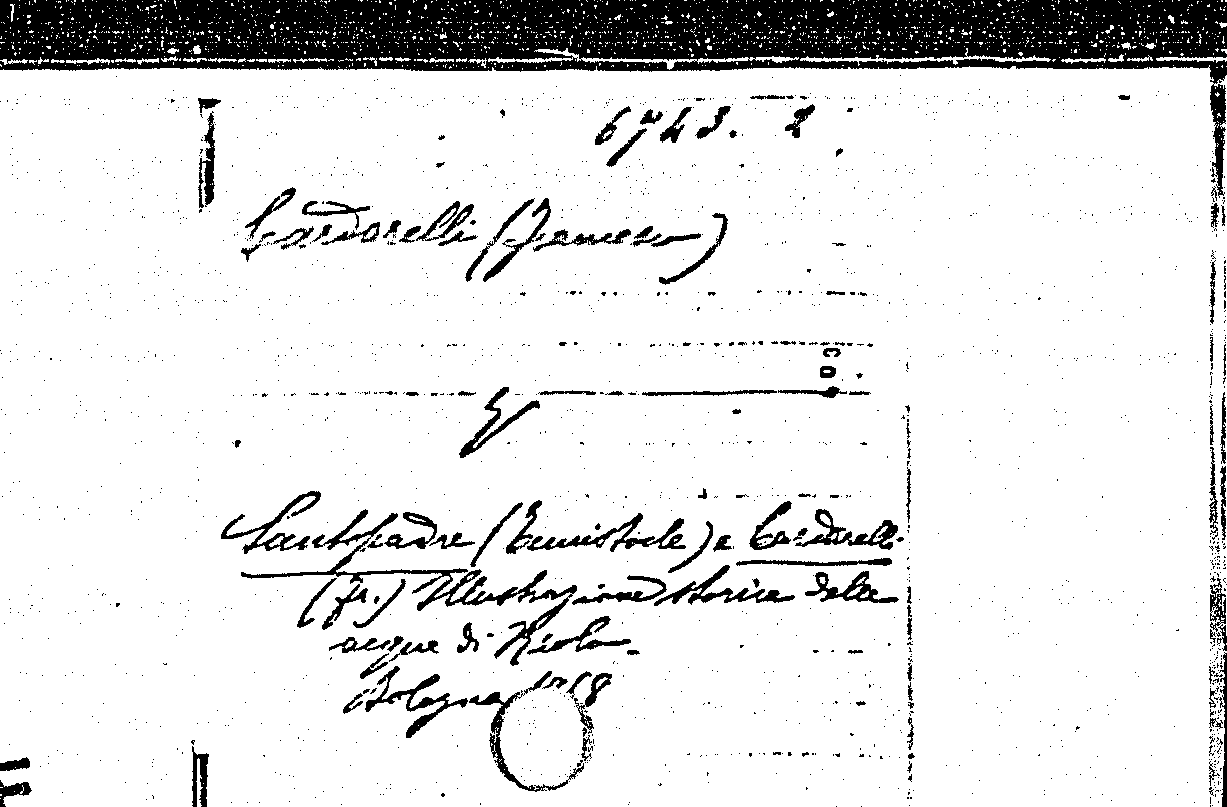 6743. 2
Cardarelli (Francesco)
Santopadre (Temistocle) e Cardarelli
(Fr.) Illustrazione storica delle
acque di Riolo.
Bologna